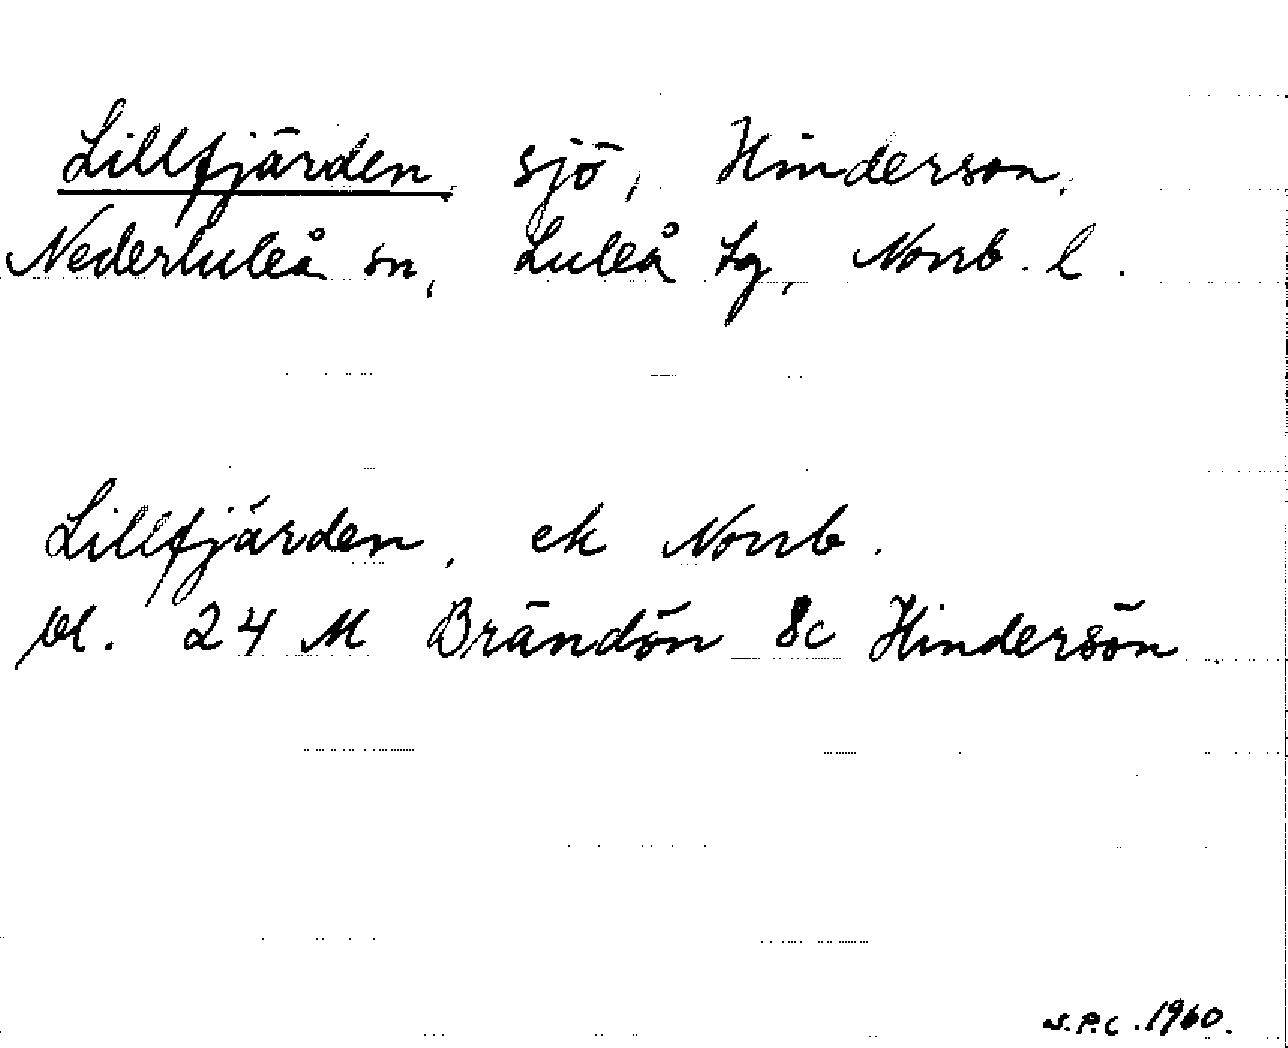 Lillfjärden, sjö, Hinderson,
Nederluleå sn, Luleå tg, Norrb. l.
Lillfjärden, ek Norrb.
bl. 24 M Brändön 8c Hindersön
S.P.C. 1960.